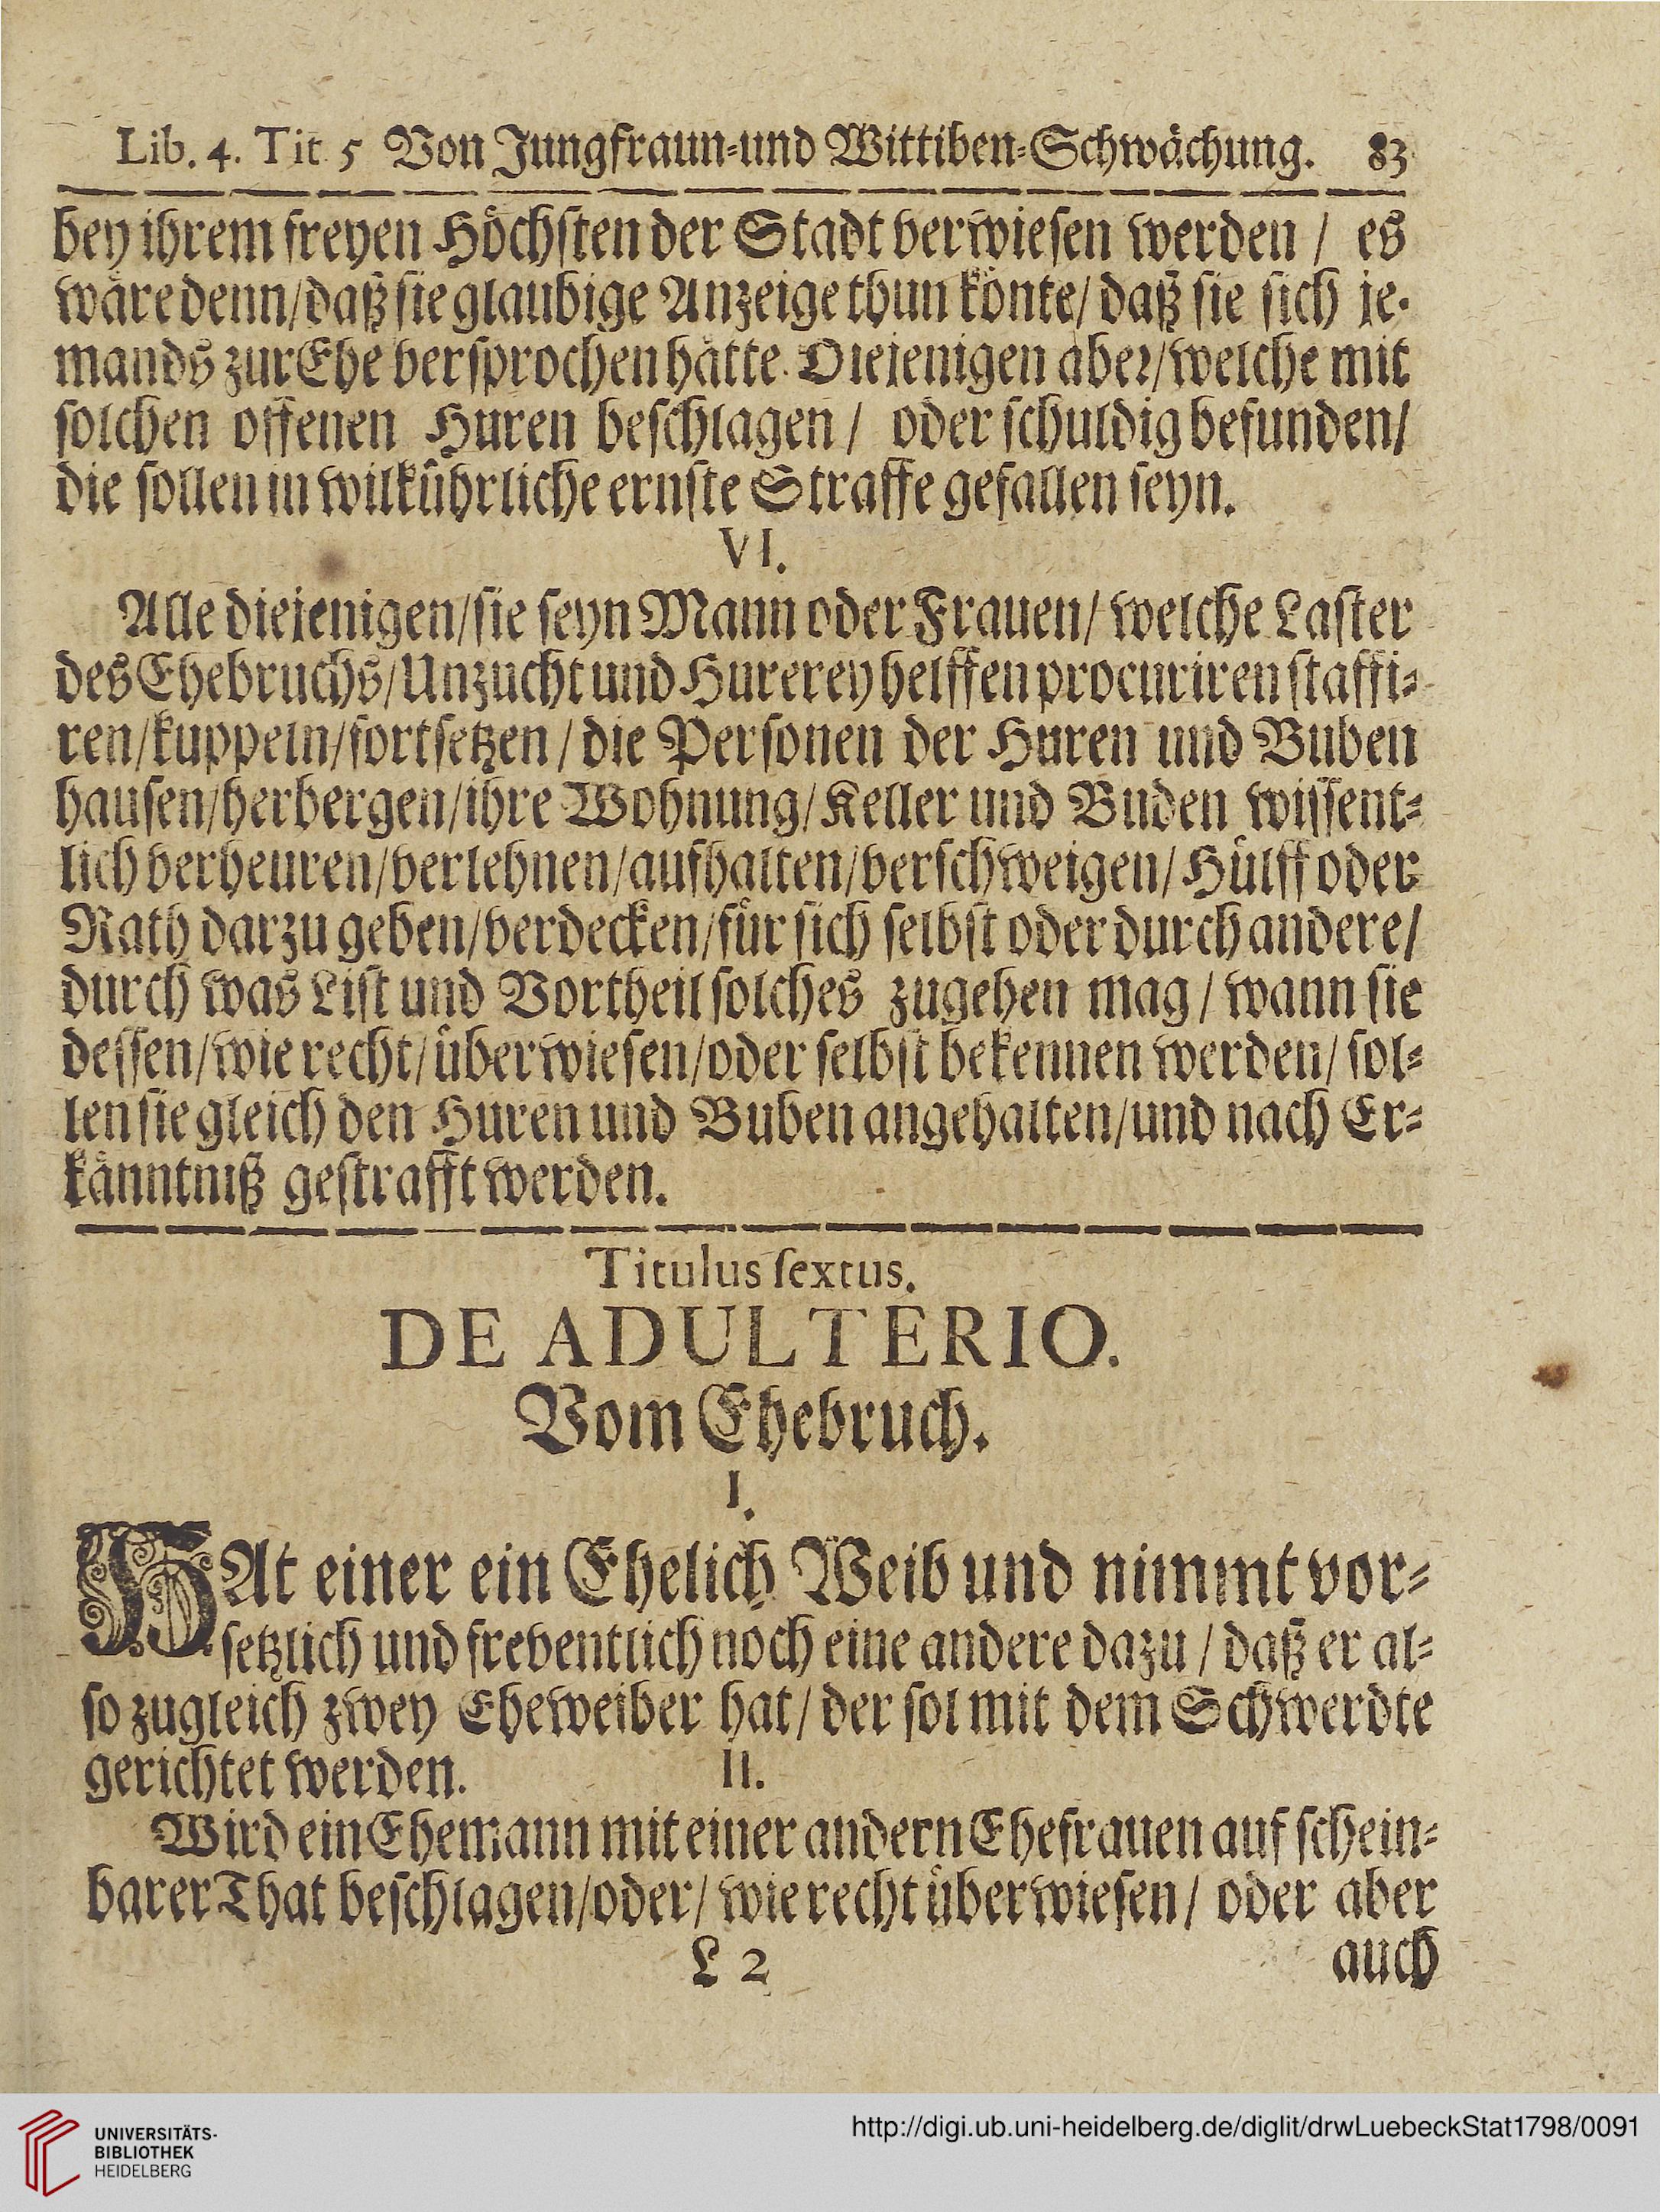 Lib. 4. Tit. 5 Von Jungfraun-und Wittiben-Schwächung. 83
bey ihrem freyen Höchsten der Stadt verwiesen werden / es
wäre denn/daß sie glaubige Anzeige thun könte/ daß sie sich je-
mands zur Ehe versprochen hätte. Diejenigen aber/welche mit
solchen offenen Huren beschlagen / oder schuldig befunden/
die sollen in wilkührliche ernste Straffe gefallen seyn.
VI.
Alle diejenigen/sie seyn Mann oder Frauen/ welche Laster
des Ehebruchs/Unzucht und Hurerey helffen procuriren staffi-
ren/kuppeln/fortsetzen / die Personen der Huren und Buben
hausen/herbergen/ihre Wohnung/Keller und Buden wissent-
lich verheuren/verlehnen/aufhalten/verschweigen/ Hülff oder
Rath darzu geben/verdecken/für sich selbst oder durch andere/
durch was List und Vortheil solches zugehen mag / wann sie
dessen/wie recht/überwiesen/oder selbst bekennen werden/ sol-
len sie gleich den Huren und Buben angehalten/und nach Er-
känntniß gestrafft werden.
Titulus sextus.
DE ADULTERIO.
Vom Ehebruch.
I.
HAt einer ein Ehelich Weib und nimmt vor-
setzlich und freventlich noch eine andere dazu / daß er al-
so zugleich zwey Eheweiber hat/ der sol mit dem Schwerdte
gerichtet werden. II.
Wird ein Ehemann mit einer andern Ehefrauen auf schein-
barer That beschlagen/oder/ wie recht überwiesen/ oder aber
L 2 auch
UNIVERSITÄTS-
BIBLIOTHEK
HEIDELBERG
http://digi.ub.uni-heidelberg.de/diglit/drwLuebeckStat1798/0091